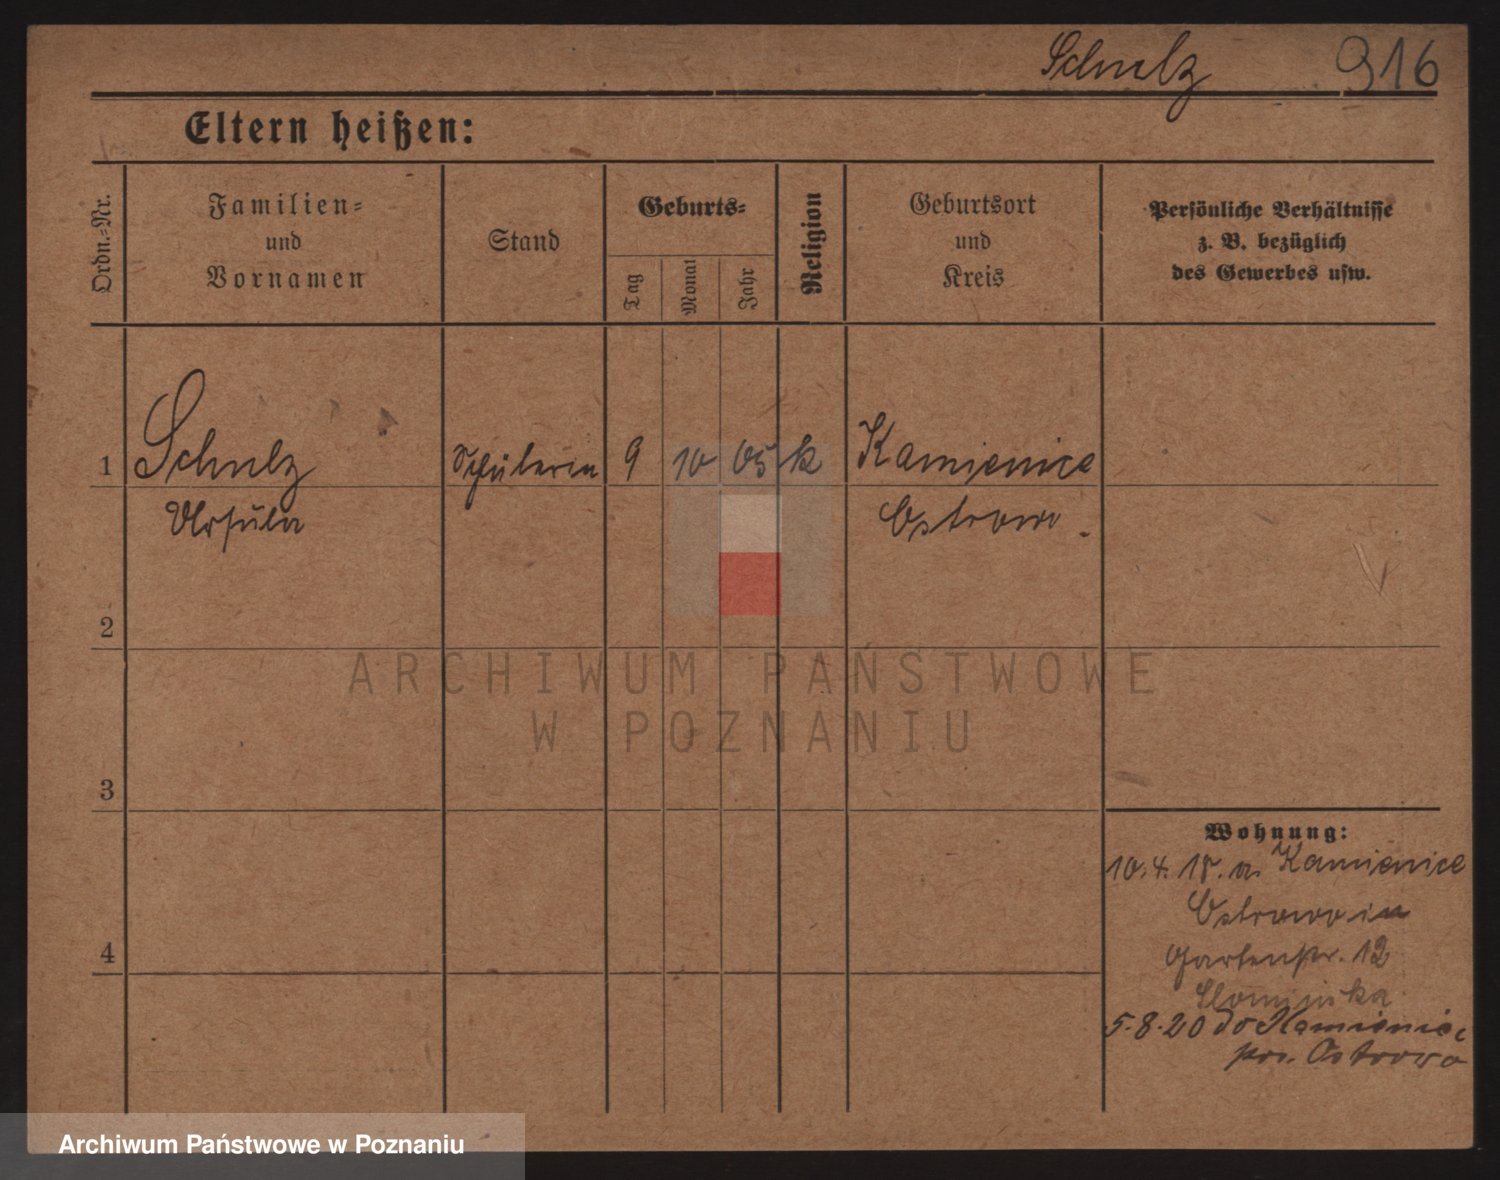 Schulz 916
Eltern heißen:
Ordn.-Nr.
Familien-
und
Vornamen
Stand
Geburts-
Tag
Monat
Jahr
Religion
Geburtsort
und
Kreis
Persönliche Verhältnisse
z. B. bezüglich
des Gewerbes usw.
1 Schulz Schülerin 9 10 05 k Kamienice
Ursula Ostrowo.
2
3
4
Wohnung:
10.4.18. a. Kamienice
Ostrowo
Gartenstr. 12
Slominska
5.8.20 do Kamieniec
pow. Ostrowo
ARCHIWUM PAŃSTWOWE
W POZNANIU
Archiwum Państwowe w Poznaniu